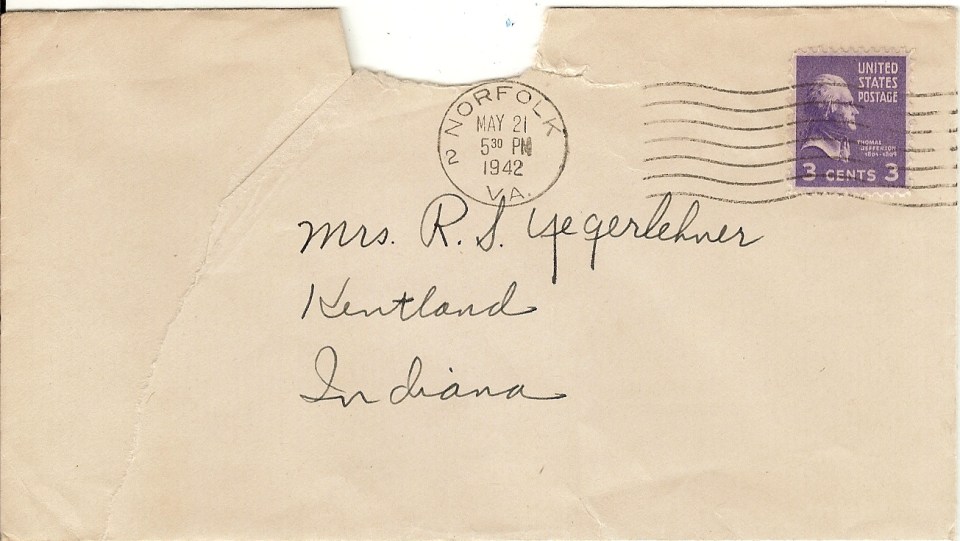 NORFOLK
2
MAY 21
5 30 PM
1942
VA.
UNITED
STATES
POSTAGE
THOMAS
JEFFERSON
3 CENTS 3
Mrs. R. S. Yegerlehner
Kentland
Indiana